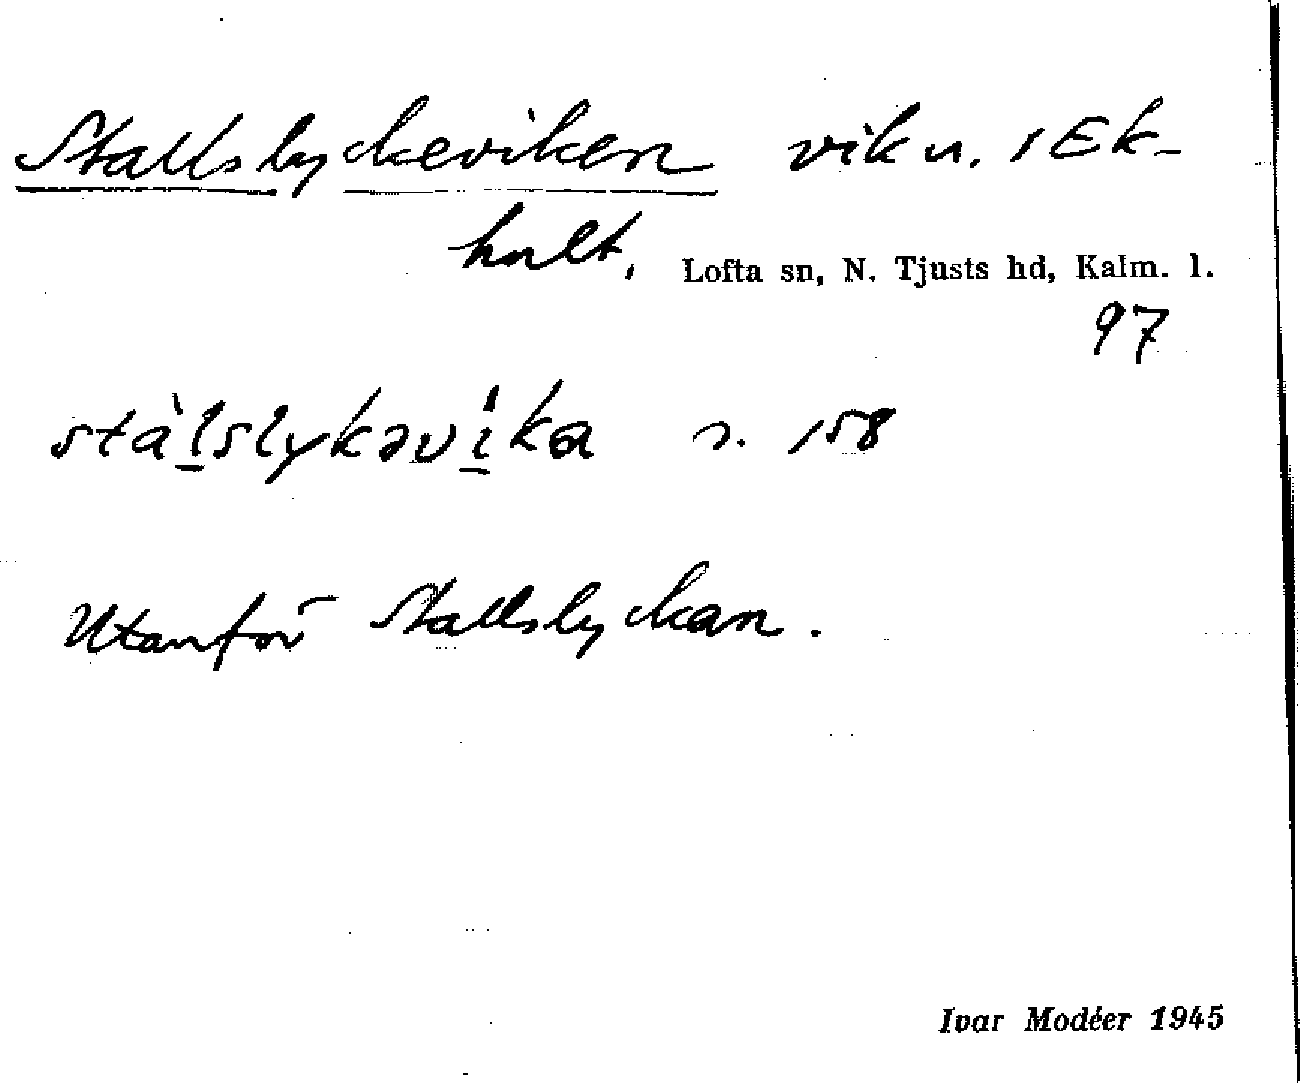 Stallslyckeviken vik n. i Ek-
hult. Lofta sn, N. Tjusts hd, Kalm. l.
97
stàlslykəvika s. 158
Utanför Stallslyckan.
Ivar Modéer 1945